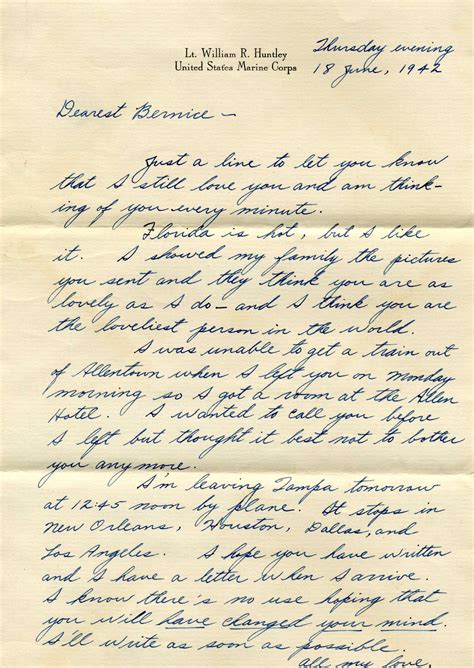 Lt. William R. Huntley
United States Marine Corps
Thursday evening
18 June, 1942
Dearest Bernice —
Just a line to let you know
that I still love you and am think-
ing of you every minute.
Florida is hot, but I like
it. I showed my family the pictures
you sent and they think you are as
lovely as I do - and I think you are
the loveliest person in the world.
I was unable to get a train out
of Allentown when I left you on Monday
morning so I got a room at the Allen
Hotel. I wanted to call you before
I left but thought it best not to bother
you any more.
I'm leaving Tampa tomorrow
at 12:45 noon by plane. It stops in
New Orleans, Houston, Dallas, and
Los Angeles. I hope you have written
and I have a letter when I arrive.
I know there's no use hoping that
you will have changed your mind.
I'll write as soon as possible.
All my love,